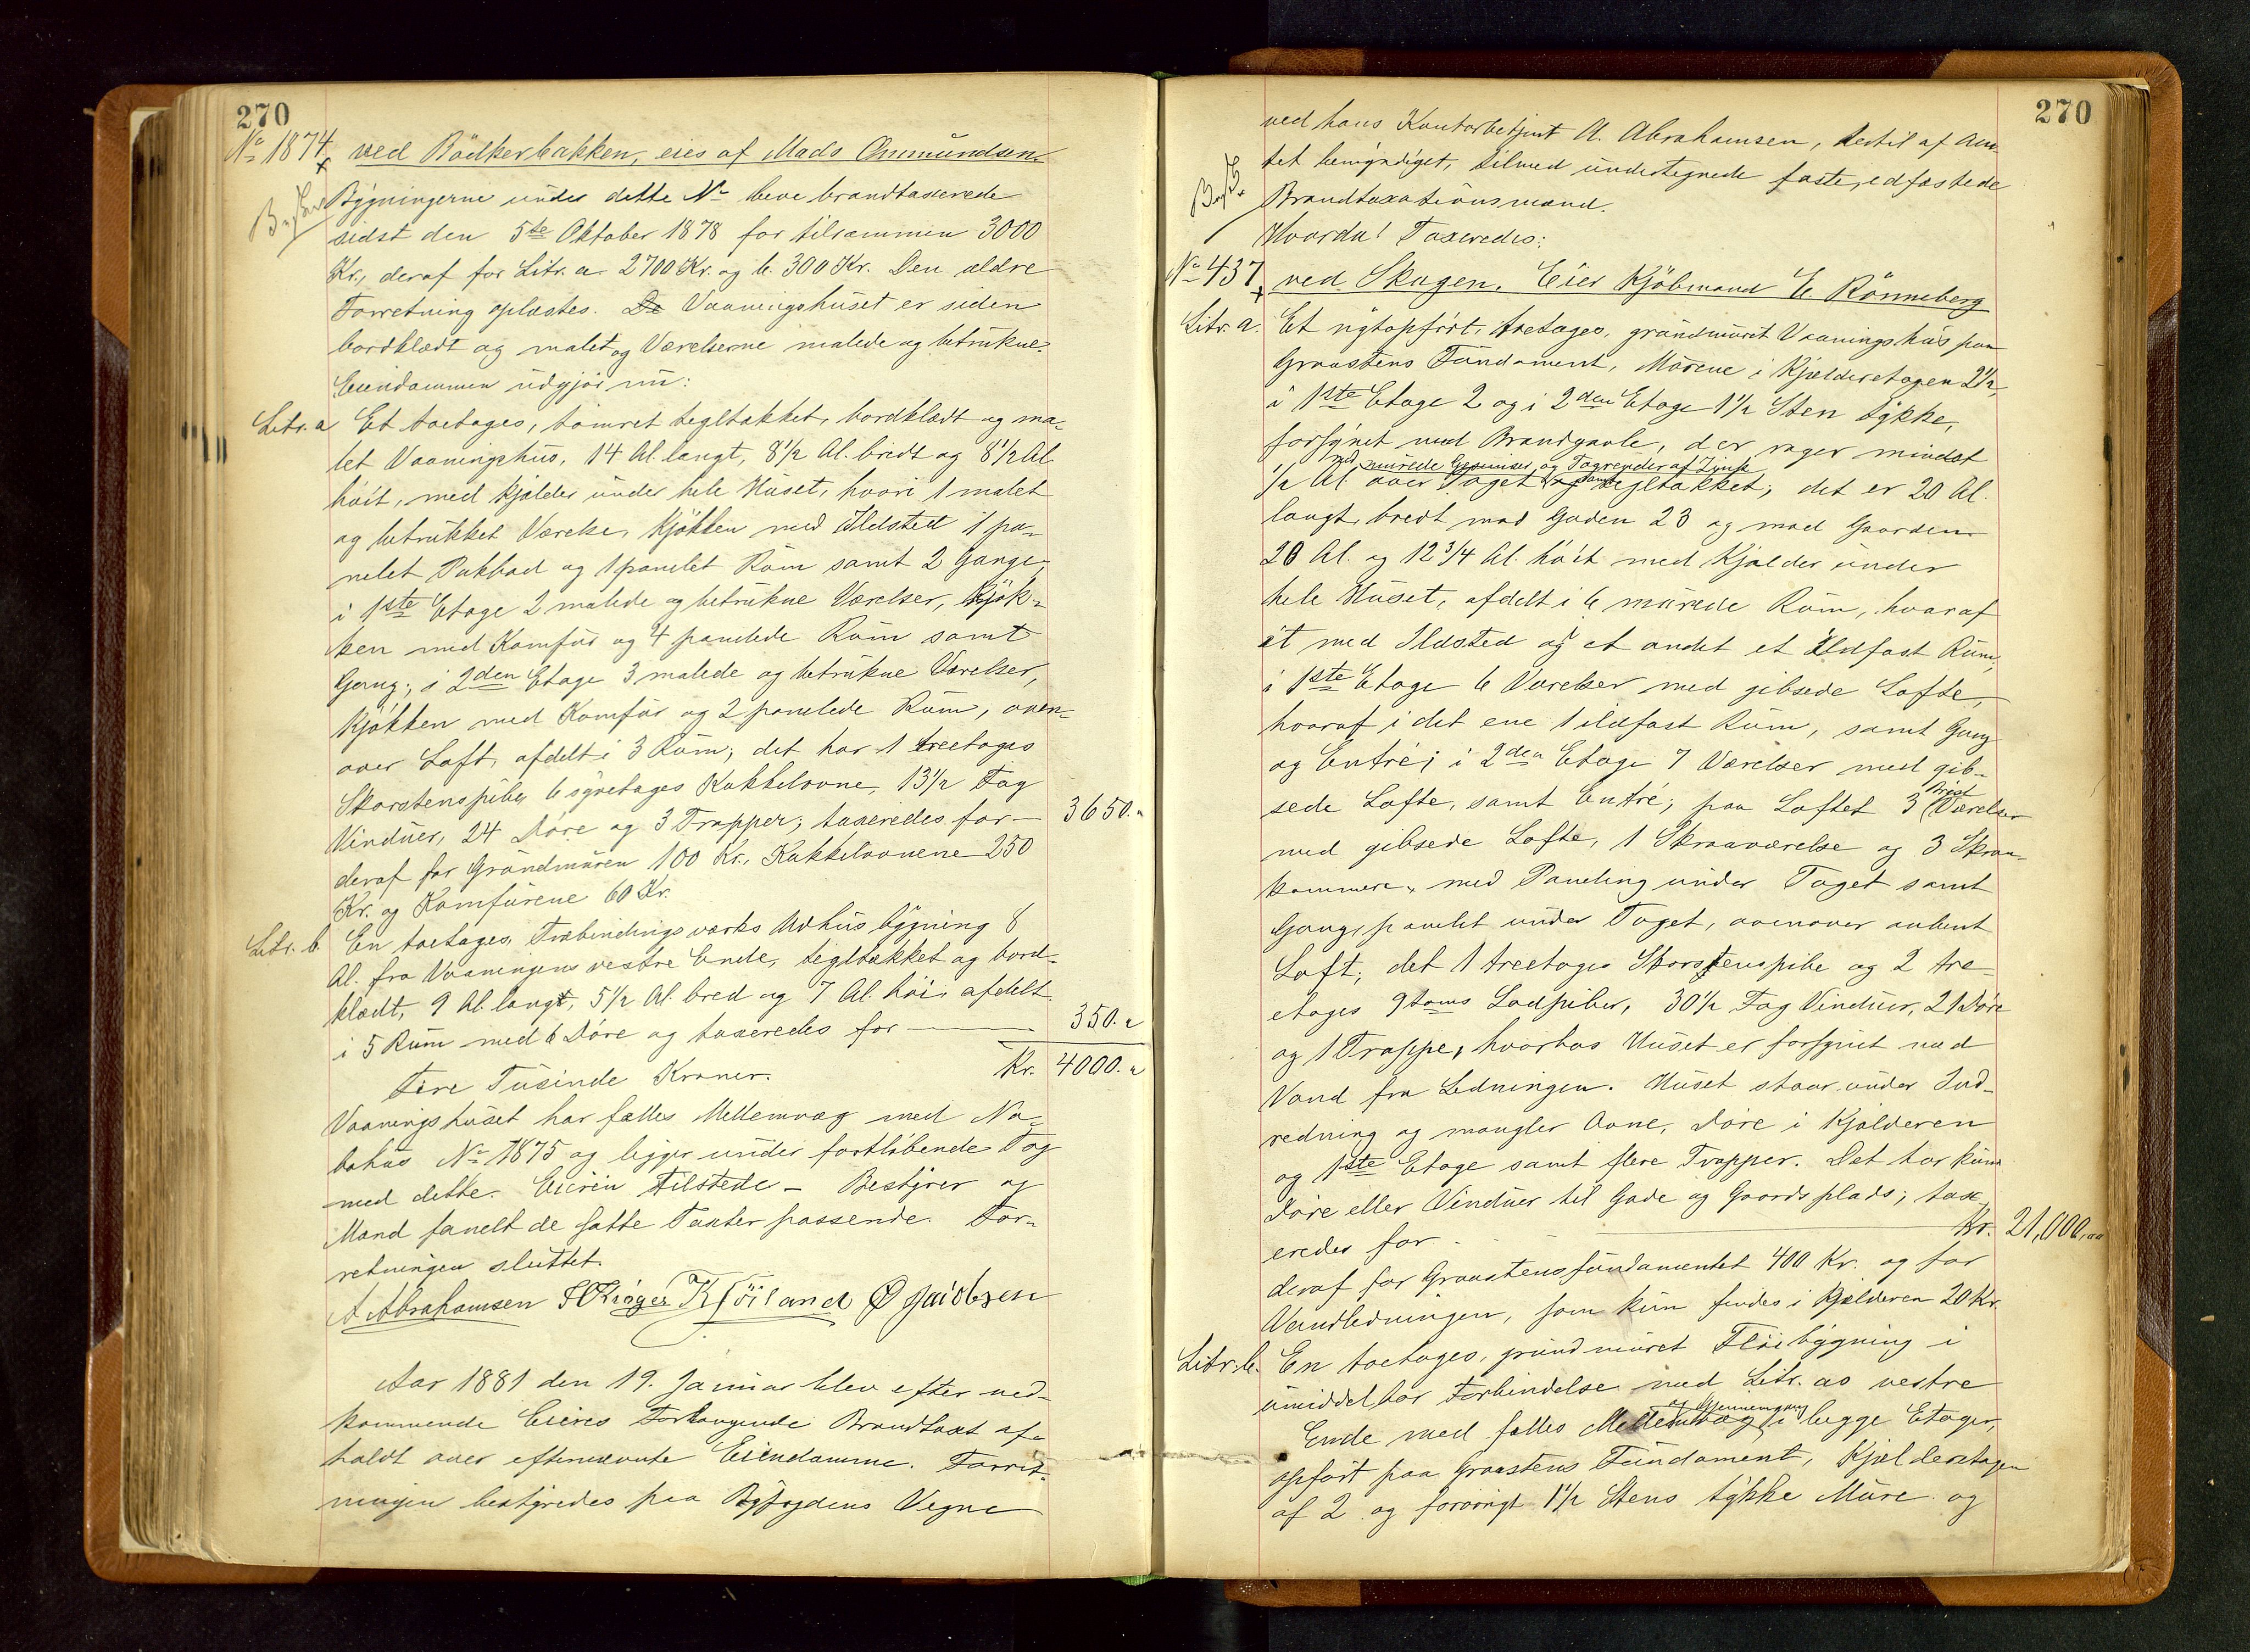 270
No 1874 ved Bödkerbakken, eies af Mads Ommundsen
Bygningerne under dette No beve brandtaxerede
sidst den 5te Oktober 1878 for tilsammen 3000
Kr., deraf for Litr. a. 2700 Kr. og b. 300 Kr. Den ældre
Forretning oplæstes. De Vaaningshuset er siden
bordklædt og malet og Værelserne malede og betrukne.
Eiendommen udgjör nu:
Litr. a Et toetages, tömret tegltækket, bordklædt og ma-
let Vaaningshus, 14 Al. langt, 8 1/2 Al. bredt og 8 1/2 Al.
höit, med Kjælder under hele Huset, hvori 1 malet
og betrukket Værelse, Kjökken med Ildsted 1 pa-
nelet Pakbod og 1 panelet Rum samt 2 Gange,
i 1ste Etage 2 malede og betrukne Værelser, Kjök-
ken med Komfur og 4 panelede Rum samt
Gang; i 2den Etage 3 malede og betrukne Værelser,
Kjökken med Komfur og 2 panelede Rum, oven-
over Loft, afdelt i 3 Rum; det har 1 treetages
Skorstenspibe, 6 syvetages Kakkelovne, 13 1/2 Fag
Vinduer, 24 Döre og 3 Trapper; taxeredes for — 3650.
deraf for Grundmuren 100 Kr., Kakkelovnene 250
Kr. og Komfurene 60 Kr.
Litr. b En toetages, Træbindingsværks Udhusbygning 8
Al. fra Vaaningens vestre Ende, tegltækket og bord-
klædt, 9 Al. langt, 5 1/2 Al. bred og 7 Al. höi, afdelt
i 5 Rum med 6 Döre og taxeredes for — 350.
Fire Tusinde Kroner. Kr. 4000.
Vaaningshuset har fælles Mellemvæg med Na-
bohus No 1875 og ligger under fortlöbende Tag
med dette. Eieren tilstede — Bestyrer og
Mænd fandt de satte Taxter passende. For-
retningen sluttet.
A Abrahamsen Kjöiland Ø Jacobsen
Aar 1881 den 19. Januar blev efter ved-
kommende Eieres Forlangende Brandtaxt af-
holdt over efternævnte Eiendomme. Forret-
ningen bestyredes paa Byfogdens Vegne
270
ved hans Kontorbetjent A. Abrahamsen, dertil af Am-
tet bemyndiget, tilmed undertegnede faste, edfæstede
Brandtaxationsmænd.
Hvorda! Taxeredes:
No 437 ved Skagen. Eier Kjöbmand E. Rönneberg
Litr. a. Et nytopfört, toetages, grundmuret Vaaningshus paa
Graastens Fundament, Murene i Kjælderetagen 2 1/2,
i 1ste Etage 2 og i 2den Etage 1 1/2 Sten tykke,
forsynet med Brandgavle, der rager mindst
med murede Gesimser og Tagrender af Zink
1/2 Al. over Taget og tegltækket; det er 20 Al.
langt, bredt mod Gaden 23 og mod Gaarden
20 Al. og 12 3/4 Al. höit med Kjælder under
hele Huset, afdelt i 6 murede Rum, hvoraf
et med Ildsted og et andet et Ildfast Rum,
i 1ste Etage 6 Værelser med gibsede Lofte,
hvoraf i det ene 1 ildfast Rum, samt Gang
og Entré; i 2den Etage 7 Værelser med gib-
sede Lofte, samt Entré; paa Loftet 3 Kvist Værelser
med gibsede Lofte, 1 Skraaværelse og 3 Skraa-
kammere, med Paneling under Taget samt
Gang, panelet under Taget, ovenover aabent
Loft; det 1 treetages Skorstenspibe og 2 tre-
etages 9toms Lodpiber, 30 1/2 Fag Vinduer, 21 Döre
og 1 Trappe, hvorhos Huset er forsynet med
Vand fra Ledningen. Huset staar under Ind-
redning og mangler Ovne, Döre i Kjælderen
og 1ste Etage samt flere Trapper. Det har kun
Döre eller Vinduer til Gade og Gaardsplads; tax-
eredes for — Kr. 21,000,
deraf for Graastensfundamentet 400 Kr. og for
Vandledningen, som kun findes i Kjælderen 20 Kr.
Litr. b. En toetages, grundmuret Flöibygning i
umiddelbar Forbindelse med Litr. as vestre
og Gjennemgang
Ende med fælles Mellemvæg i begge Etager,
opfört paa Graastens Fundament, Kjælderetagen
af 2 og forövrigt 1 1/2 Stens tykke Mure og